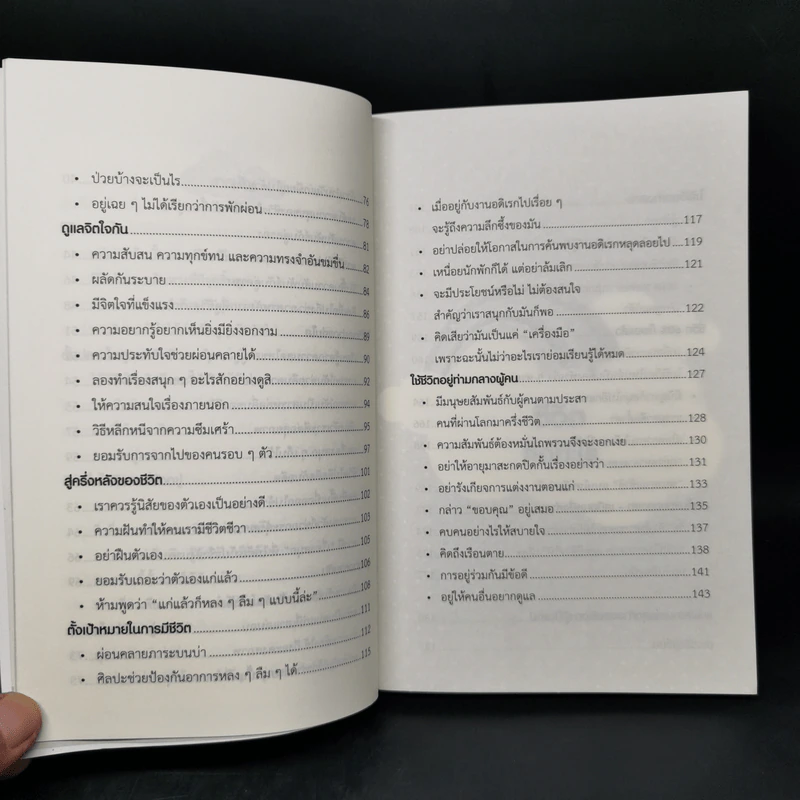 • ป่วยบ้างจะเป็นไร........76
• อยู่เฉย ๆ ไม่ได้เรียกว่าการพักผ่อน........78
ดูแลจิตใจกัน........81
• ความสับสน ความทุกข์ทน และความทรงจำอันขมขื่น........82
• ผลัดกันระบาย........84
• มีจิตใจที่แข็งแรง........86
• ความอยากรู้อยากเห็นยิ่งมียิ่งงอกงาม........89
• ความประทับใจช่วยผ่อนคลายได้........90
• ลองทำเรื่องสนุก ๆ อะไรสักอย่างดูสิ........92
• ให้ความสนใจเรื่องภายนอก........94
• วิธีหลีกหนีจากความซึมเศร้า........95
• ยอมรับการจากไปของคนรอบ ๆ ตัว........97
สู่ครึ่งหลังของชีวิต........101
• เราควรรู้นิสัยของตัวเองเป็นอย่างดี........102
• ความฝันทำให้คนเรามีชีวิตชีวา........103
• อย่าฝืนตัวเอง........105
• ยอมรับเถอะว่าตัวเองแก่แล้ว........106
• ห้ามพูดว่า "แก่แล้วก็หลง ๆ ลืม ๆ แบบนี้ล่ะ"........108
ตั้งเป้าหมายในการมีชีวิต........111
• ผ่อนคลายภาระบนบ่า........112
• ศิลปะช่วยป้องกันอาการหลง ๆ ลืม ๆ ได้........115
• เมื่ออยู่กับงานอดิเรกไปเรื่อย ๆ
จะรู้ถึงความลึกซึ้งของมัน........117
• อย่าปล่อยให้โอกาสในการค้นพบงานอดิเรกหลุดลอยไป........119
• เหนื่อยนักพักก็ได้ แต่อย่าล้มเลิก........121
• จะมีประโยชน์หรือไม่ ไม่ต้องสนใจ
สำคัญว่าเราสนุกกับมันก็พอ........122
• คิดเสียว่ามันเป็นแค่ "เครื่องมือ"
เพราะฉะนั้นไม่ว่าอะไรเราย่อมเรียนรู้ได้หมด........124
ใช้ชีวิตอยู่ท่ามกลางผู้คน........127
• มีมนุษยสัมพันธ์กับผู้คนตามประสา
คนที่ผ่านโลกมาครึ่งชีวิต........128
• ความสัมพันธ์ต้องหมั่นไถพรวนจึงจะงอกเงย........130
• อย่าให้อายุมาสะกดปิดกั้นเรื่องอย่างว่า........131
• อย่ารังเกียจการแต่งงานตอนแก่........133
• กล่าว "ขอบคุณ" อยู่เสมอ........135
• คบคนอย่างไรให้สบายใจ........137
• คิดถึงเรือนตาย........138
• การอยู่ร่วมกันมีข้อดี........141
• อยู่ให้คนอื่นอยากดูแล........143